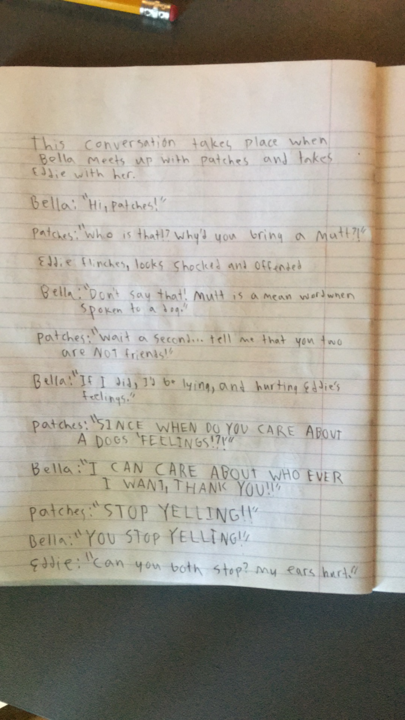 This conversation takes place when
Bella meets up with patches and takes
Eddie with her.
Bella: "Hi, patches!"
patches: "who is that!? why'd you bring a mutt?!"
Eddie flinches, looks shocked and offended
Bella: "Don't say that! Mutt is a mean word when
spoken to a dog."
patches: "wait a second... tell me that you two
are NOT friends!"
Bella: "If I did, I'd be lying, and hurting Eddie's
feelings."
patches: "SINCE WHEN DO YOU CARE ABOUT
A DOGS 'FEELINGS'!?!"
Bella: "I CAN CARE ABOUT WHO EVER
I WANT, THANK YOU!!"
patches: "STOP YELLING!!"
Bella: "YOU STOP YELLING!!"
Eddie: "can you both stop? my ears hurt."